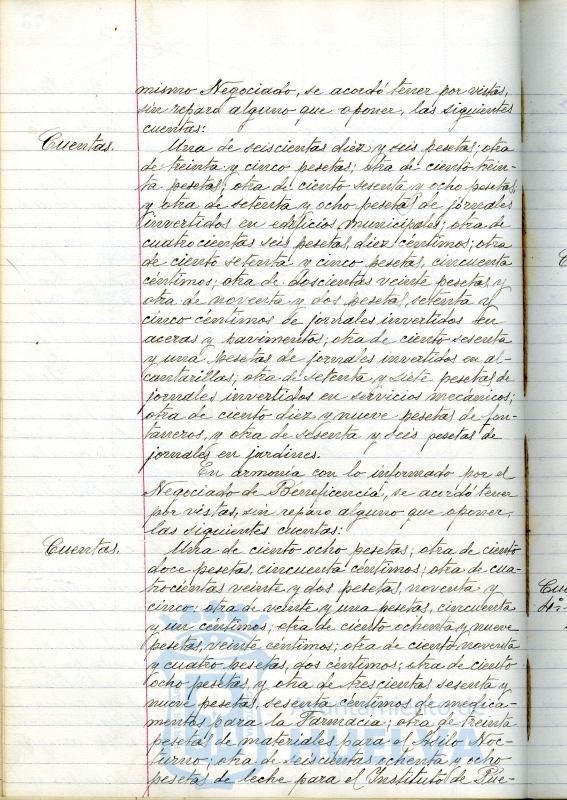 mismo Negociado, se acordó tener por vistas,
sin reparo alguno que oponer, las siguientes
cuentas:
Cuentas.
Una de seiscientas diez y seis pesetas; otra
de treinta y cinco pesetas; otra de ciento trein-
ta pesetas; otra de ciento sesenta y ocho pesetas,
y otra de setenta y ocho pesetas de jornales
invertidos en edificios municipales; otra de
cuatrocientas seis pesetas, diez céntimos; otra
de ciento setenta y cinco pesetas, cincuenta
céntimos; otra de doscientas veinte pesetas, y
otra de noventa y dos pesetas, setenta y
cinco céntimos de jornales invertidos en
aceras y pavimentos; otra de ciento sesenta
y una pesetas de jornales invertidos en al-
cantarillas; otra de setenta y siete pesetas de
jornales invertidos en servicios mecánicos;
otra de ciento diez y nueve pesetas de fon-
taneros, y otra de sesenta y seis pesetas de
jornales en jardines.
En armonía con lo informado por el
Negociado de Beneficencia, se acordó tener
por vistas, sin reparo alguno que oponer,
las siguientes cuentas:
Cuentas.
Una de ciento ocho pesetas; otra de ciento
doce pesetas, cincuenta céntimos; otra de cua-
trocientas veinte y dos pesetas, noventa y
cinco; otra de veinte y una pesetas, cincuenta
y un céntimos; otra de ciento ochenta y nueve
pesetas, veinte céntimos; otra de ciento noventa
y cuatro pesetas, dos céntimos; otra de ciento
ocho pesetas, y otra de trescientas sesenta y
nueve pesetas sesenta céntimos de medica-
mentos para la Farmacia; otra de treinta
pesetas de materiales para el Asilo Noc-
turno; otra de seiscientas ochenta y ocho
pesetas de leche para el Instituto de Pue-
Ayuntamiento de
HUELVA